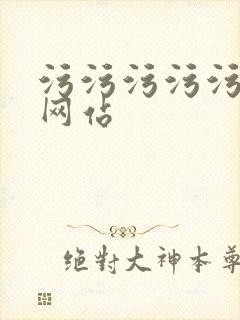 污污污污污
网站
绝对大神本尊